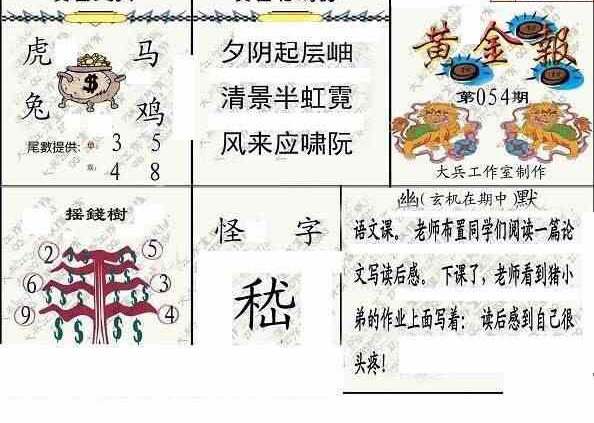 虎 马
兔 鸡
尾數提供: 单: 3 5
双: 4 8
夕阴起层岫
清景半虹霓
风来应啸阮
黄金報
第054期
大兵工作室制作
摇錢樹
2 5
6 3
9 4
怪 字
嵇
幽(玄机在期中)默
语文课。老师布置同学们阅读一篇论
文写读后感。下课了，老师看到猪小
弟的作业上面写着： 读后感到自己很
头疼!